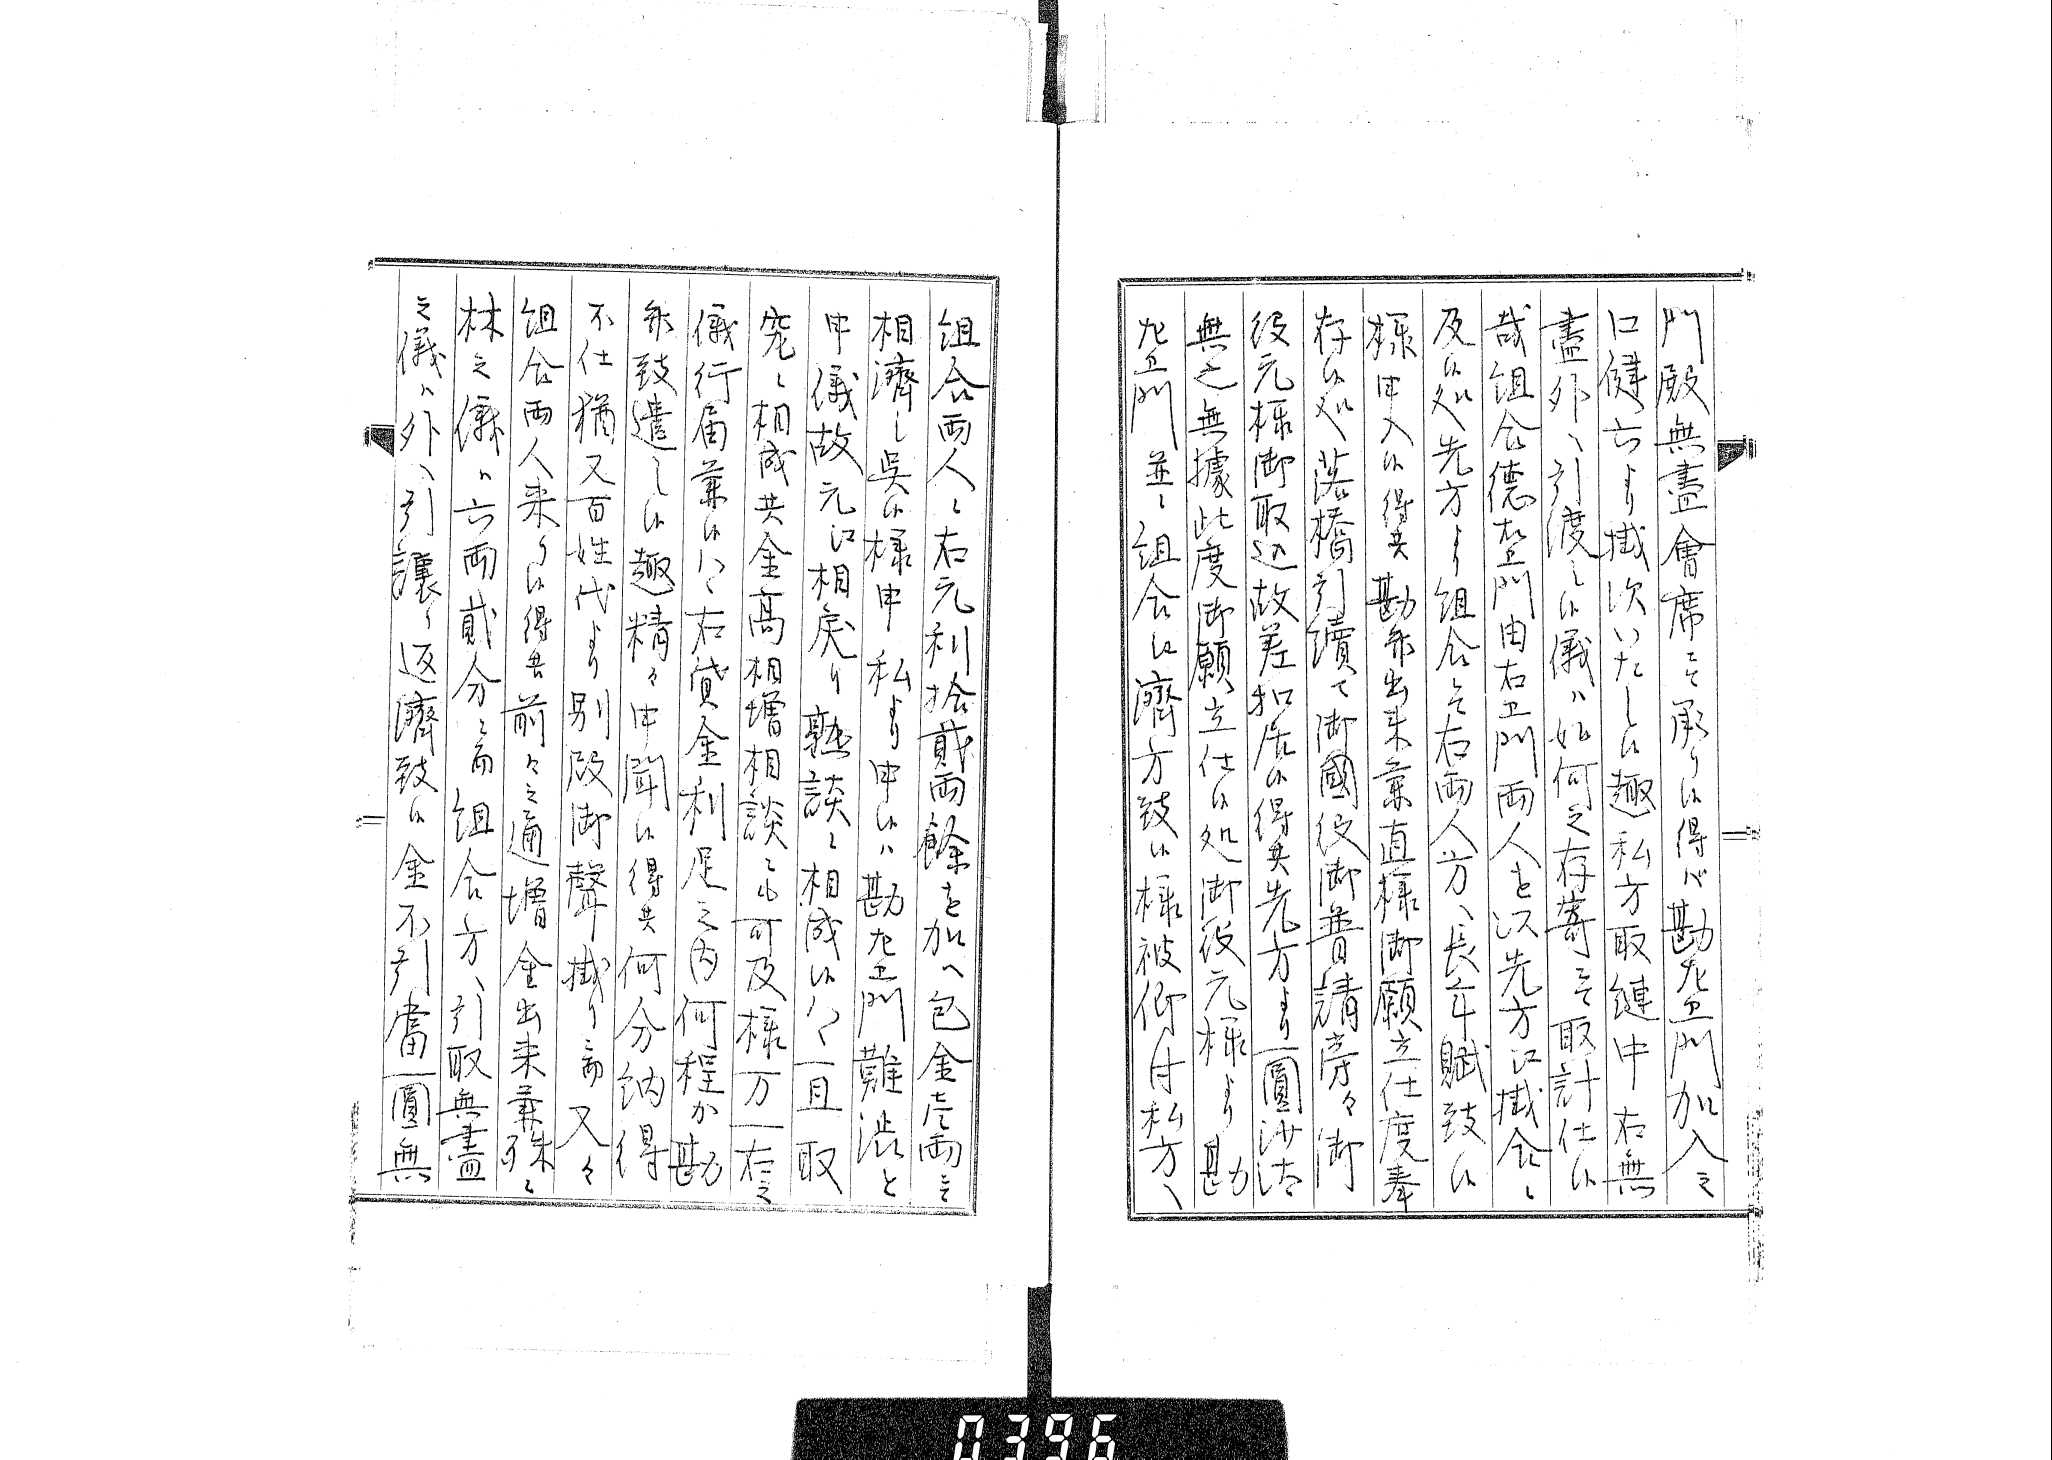 門殿無盡會席ニ而承り候得バ勘左衛門加入之
口健六より掛次いたし候趣私方取縺中右無
盡外へ引渡し候儀ハ如何之存寄ニ而取計仕候
哉組合德左衛門由右衛門両人を以先方江掛合ニ
及候処先方より組合ニ而右両人方へ長年賦致候
様申入候得共勘弁出来兼直様御願立仕度奉
存候処落橋引續て御國役御普請旁々御
役元様御取込故差扣居候得共先方より一圓沙汰
無之無據此度御願立仕候処御役元様より勘
左衛門並ニ組合江済方致候様被仰付私方へ
組合両人ニ右元利拾貳両餘を加へ包金壱両ニ而
相濟し呉候様申私より申候ハ勘左衛門難渋と
申儀故元江相戻り熟談ニ相成候ハヽ一旦取
究ニ相成共金高相増相談ニも可及様万一右之
儀行届兼候ハヽ右貸金利足之内何程か勘
弁致遣し候趣精々申聞候得共何分納得
不仕猶又百姓代より別段御聲掛り二而又々
組合両人来り候得共前々之通増金出来兼殊ニ
林之儀ハ六両貳分ニ而組合方へ引取無盡
之儀ハ外へ引譲り返濟致候金不引當一圓無
0396